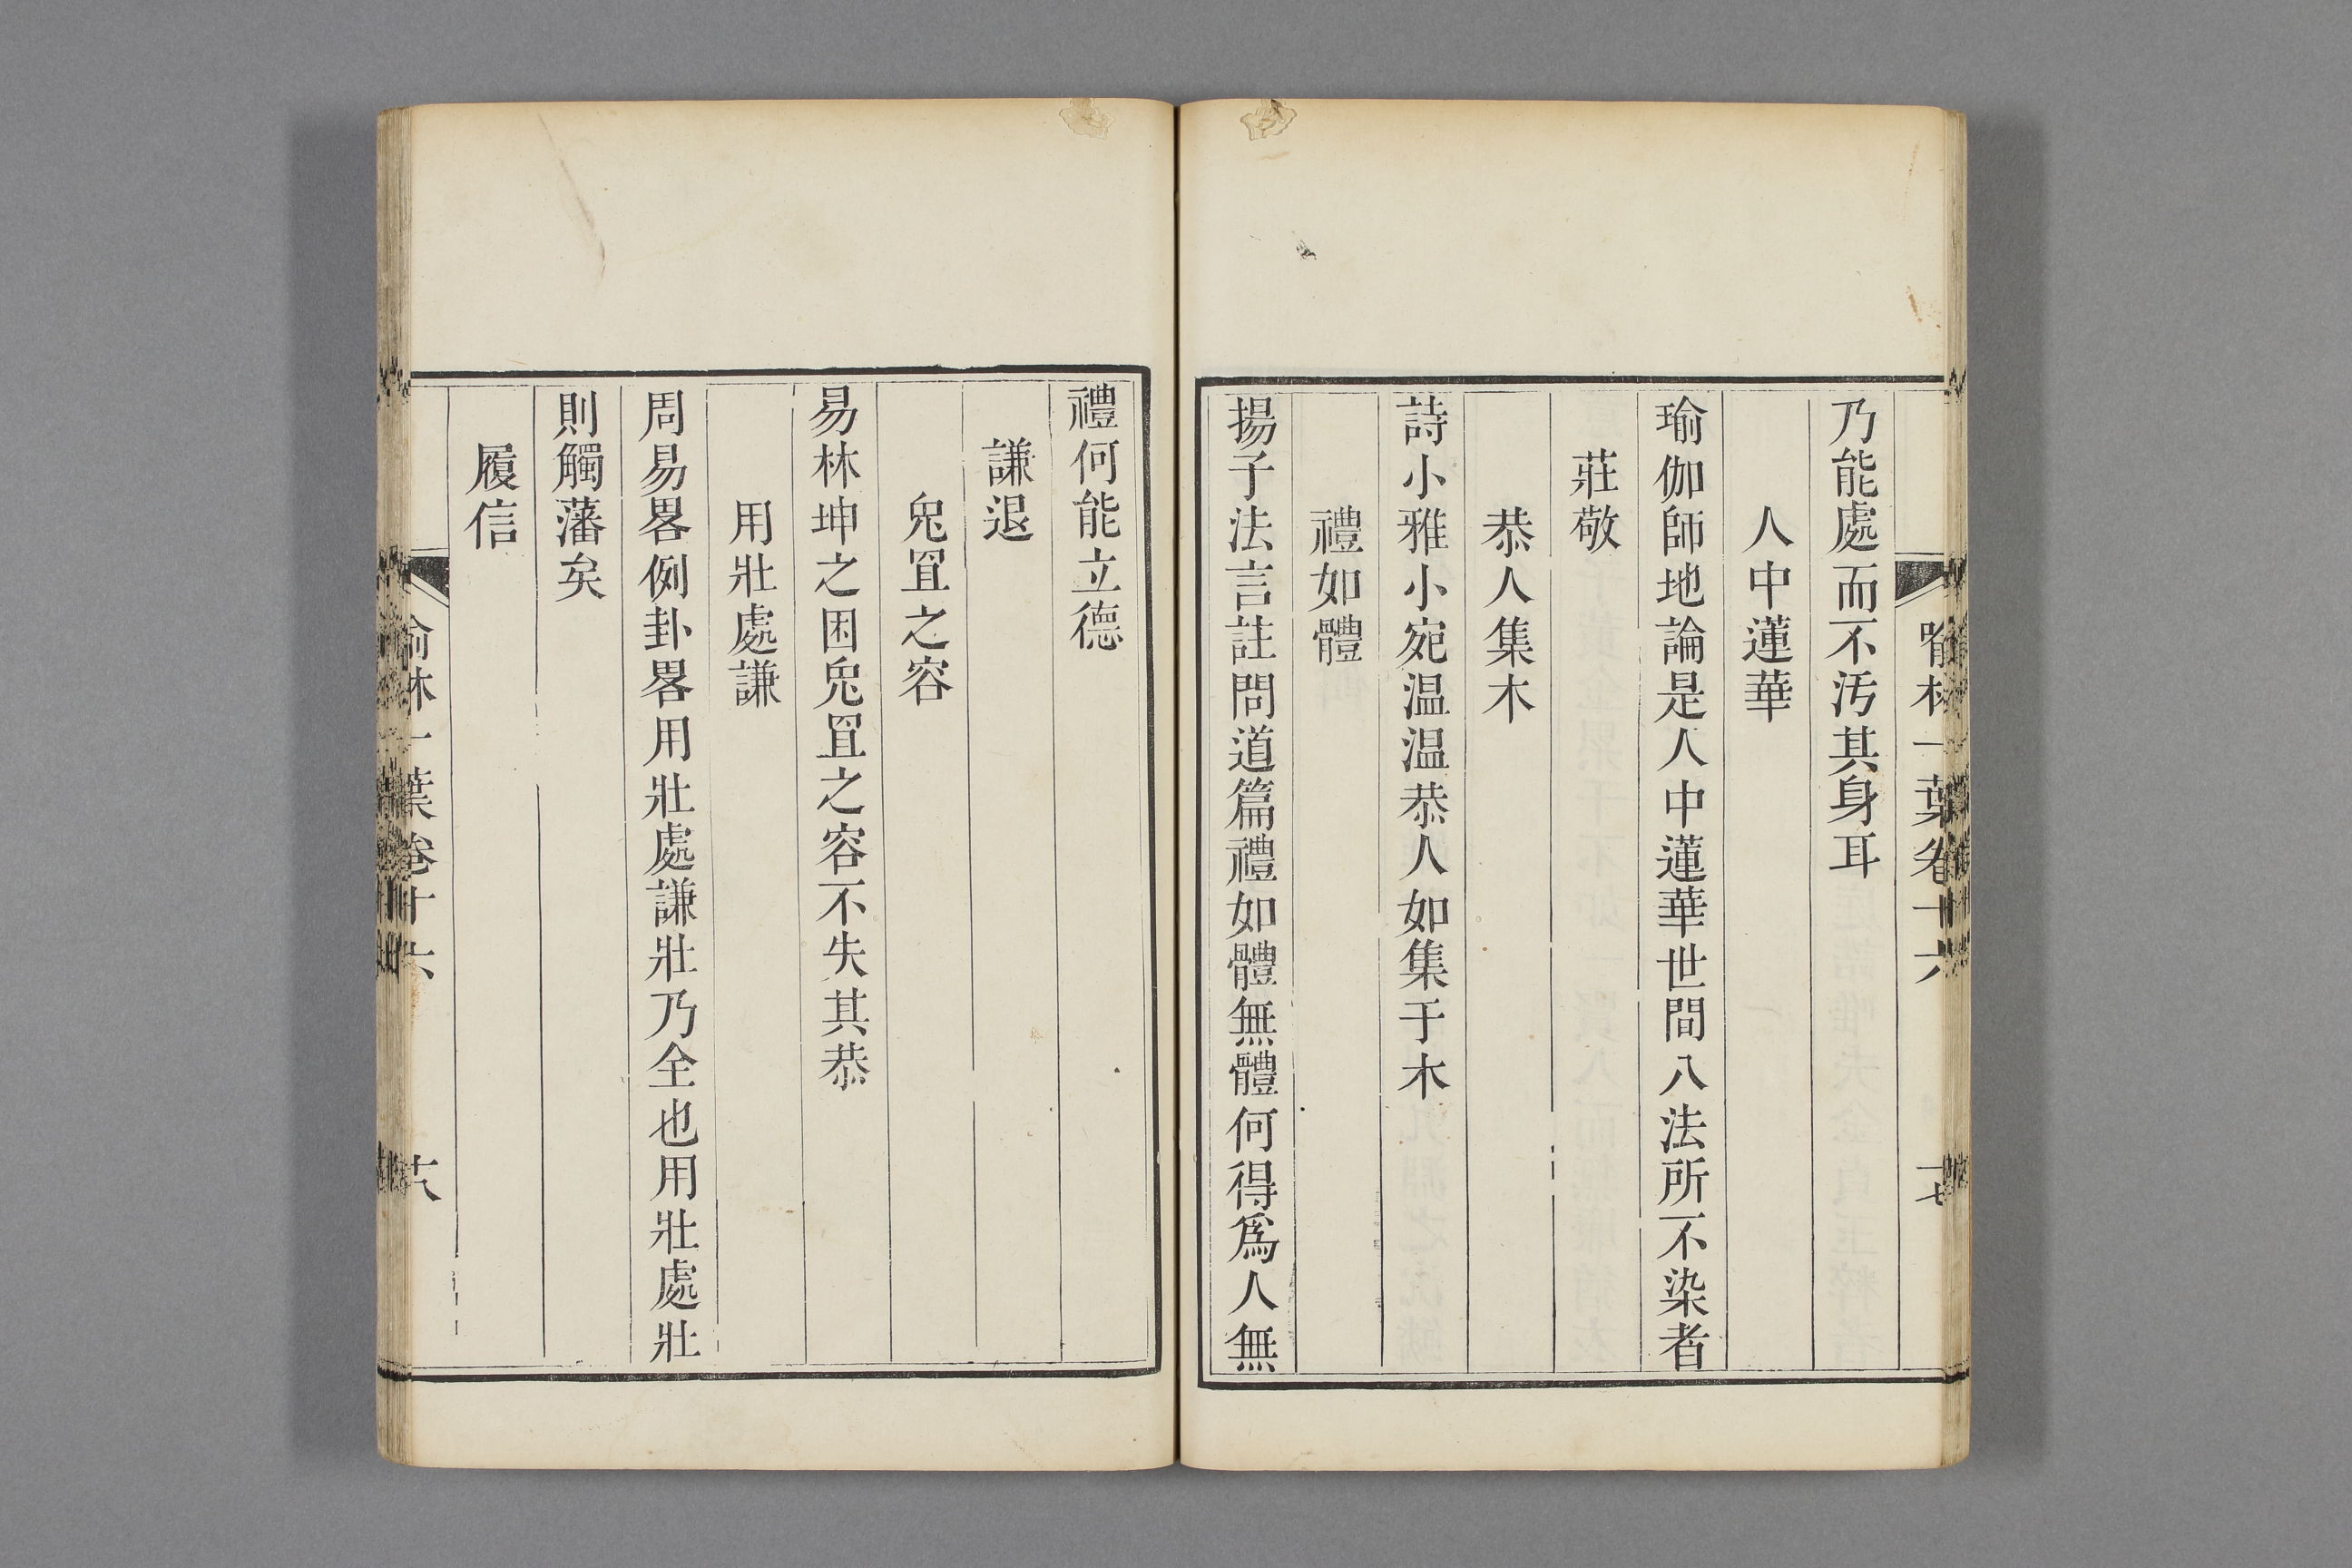 喻林一葉卷十六 十七
乃能處而不汚其身耳
人中蓮華
瑜伽師地論是人中蓮華世間八法所不染者
莊敬
恭人集木
詩小雅小宛温温恭人如集于木
禮如體
揚子法言註問道篇禮如體無體何得爲人無
禮何能立德
謙退
兔罝之容
易林坤之困兔罝之容不失其恭
用壯處謙
周易畧例卦畧用壯處謙壯乃全也用壯處壯
則觸藩矣
履信
喻林一葉卷十六 十八